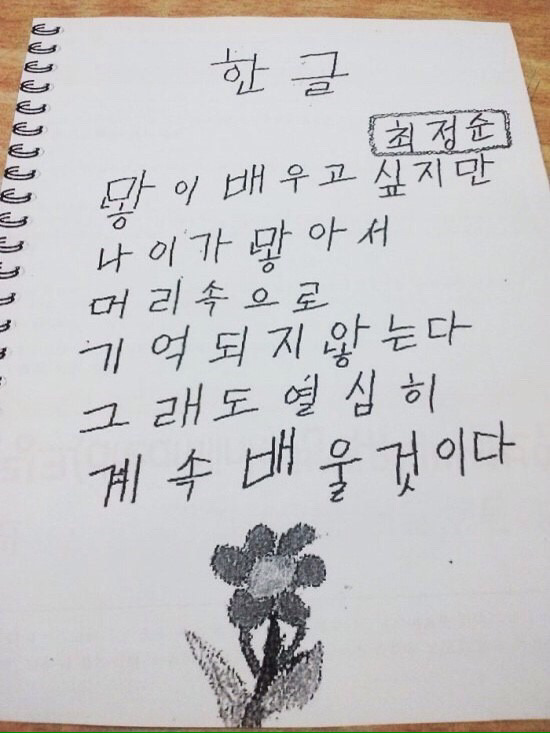 한글
최정순
많이 배우고 싶지만
나이가 많아서
머리속으로
기억되지 않는다
그래도 열심히
계속 배울겄이다